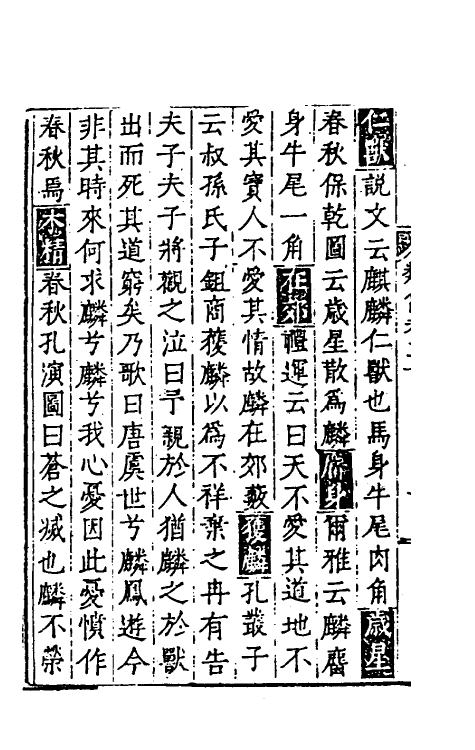 仁獸說文云麒麟仁獸也馬身牛尾肉角歲星
春秋保乾圖云歳星散爲麟麕身爾雅云麟麕
身牛尾一角在郊禮運云曰天不愛其道地不
愛其寶人不愛其情故麟在郊藪獲麟孔叢子
云叔孫氏子鉏商獲麟以爲不祥棄之冉有告
夫子夫子將觀之泣曰予親於人猶麟之於獸
出而死其道窮矣乃歌曰唐虞世兮麟鳳遊今
非其時來何求麟兮麟兮我心憂因此憂憤作
春秋焉木精春秋孔演圖曰蒼之滅也麟不榮